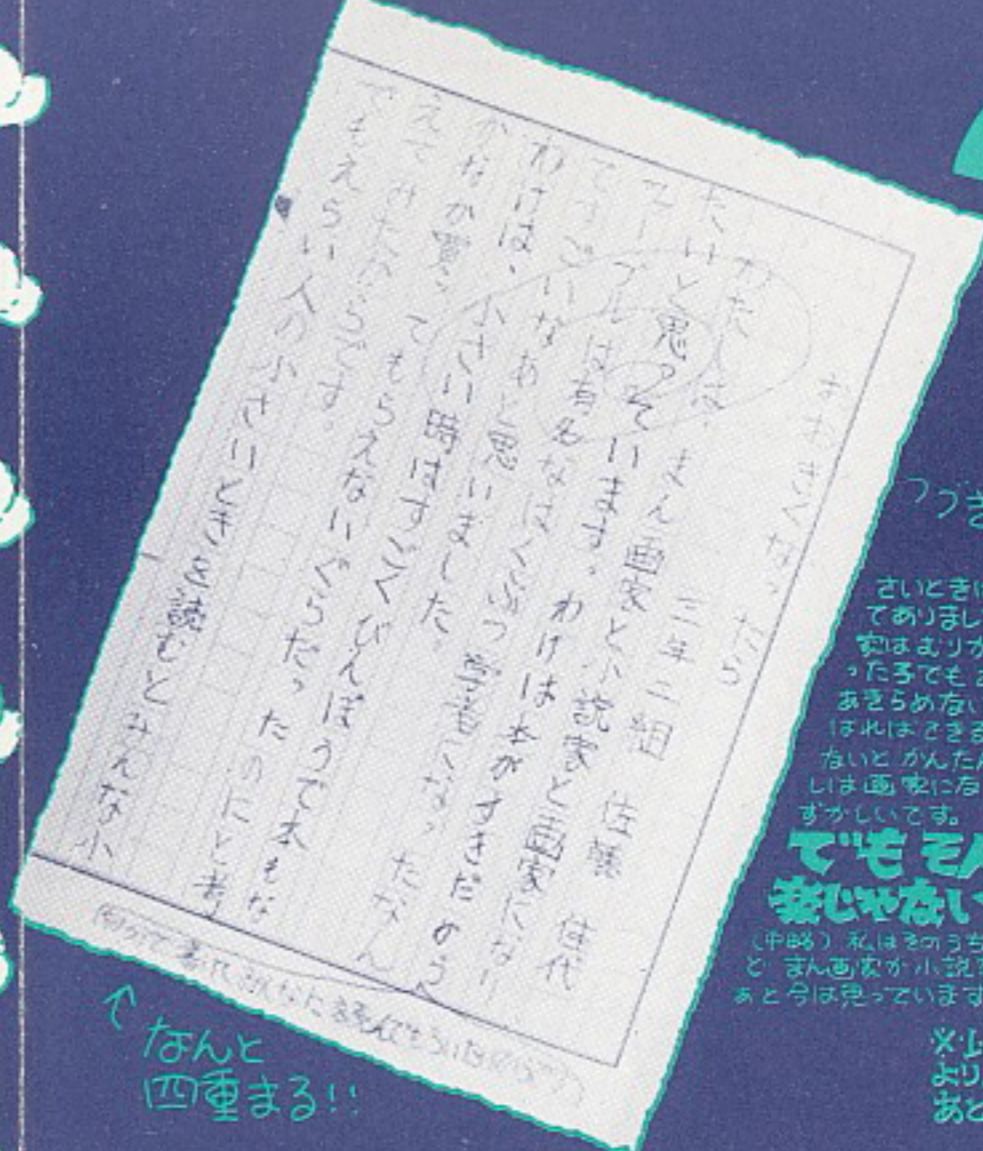 おおきくなったら
三年二組 佐藤 佳代
わたしは、まん画家と小説家と画家になり
たいと思っています。わけは本がすきだから
ファーブルは有名なはくぶつ学者になったなん
てすごいなあと思いました
わけは、小さい時はすごくびんぼうで本もな
かなか買ってもらえないぐらだったのにと考
えてみたからです。
でもえらい人の小さいときを読むとみんな小
みんなに読んでもらいたいから
↑
なんと
四重まる!!
つづき
さいときは
てありまし
家はむりか
った子でも
あきらめない
はればできる
ないと かんたん
しは画家にな
ずかしいです。
でも そん
楽じゃない
(中略) 私はそのうち
と まん画家か小説
あと今は思っています
※し
より
あと